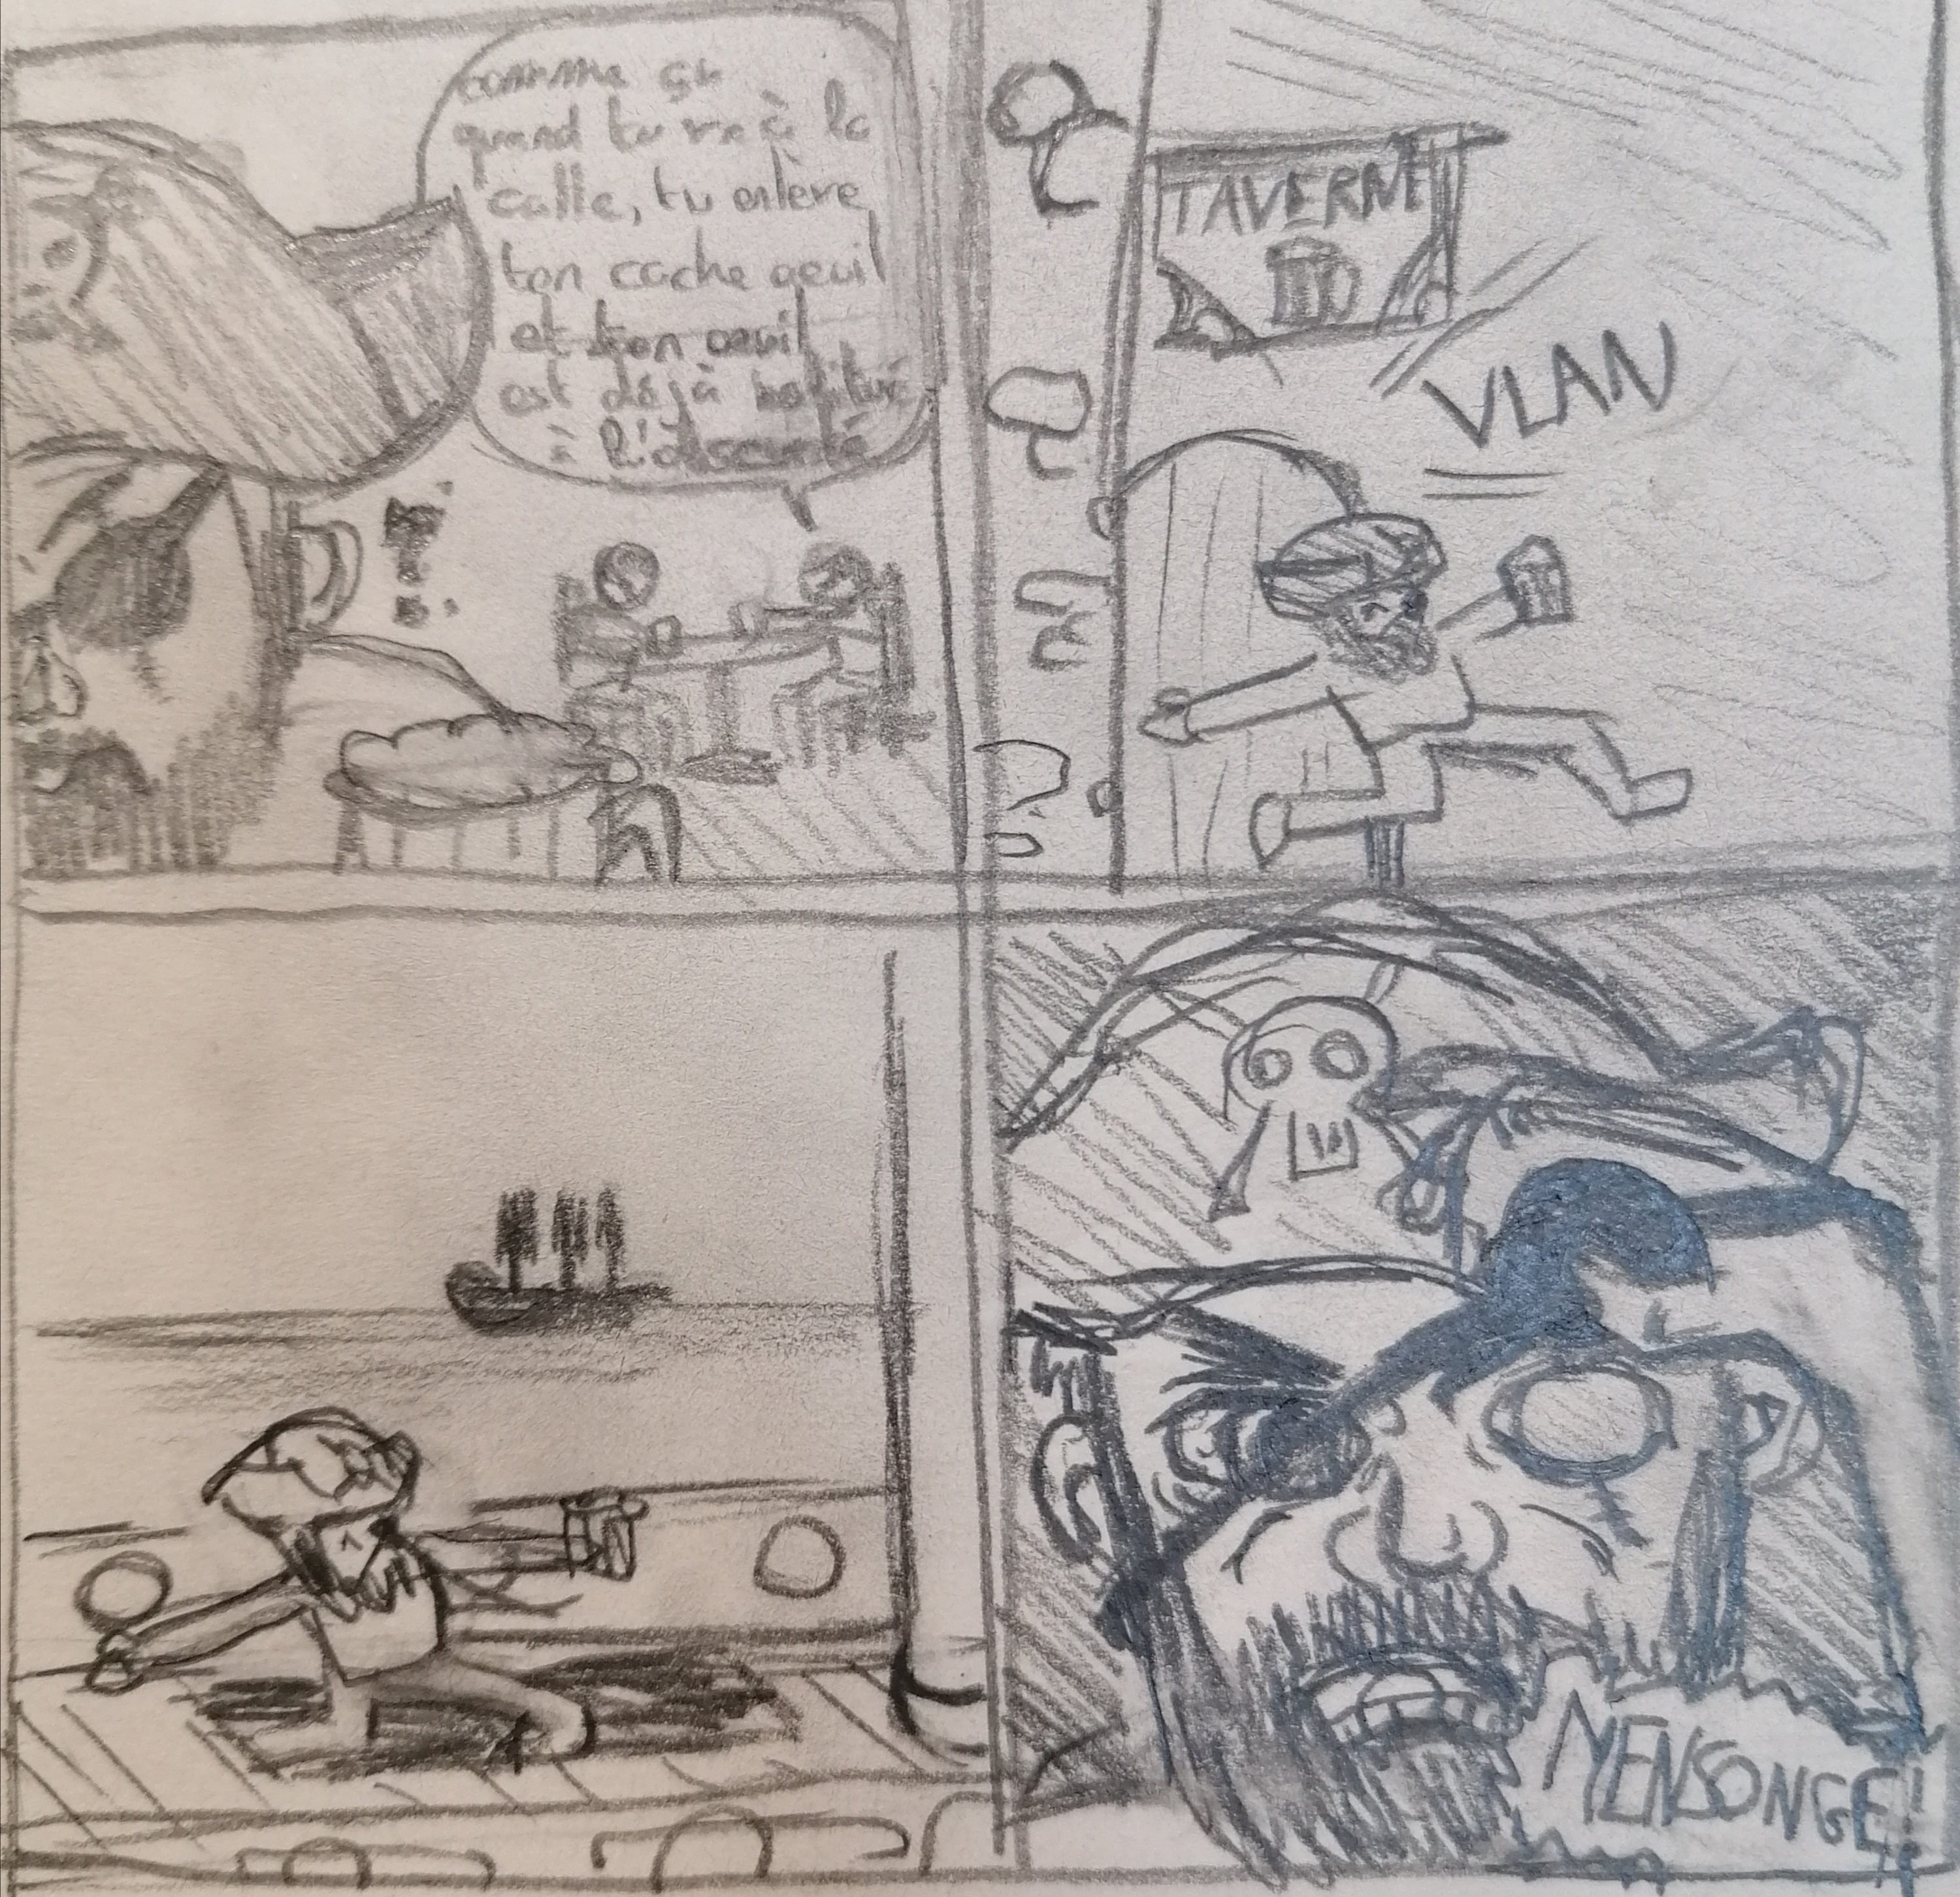 comme ça
quand tu va à la
calle, tu enlève
ton cache oeuil
et ton oeuil
est déjà habitué
à l'obscurté
?!
TAVERNE
VLAN
MENSONGE!